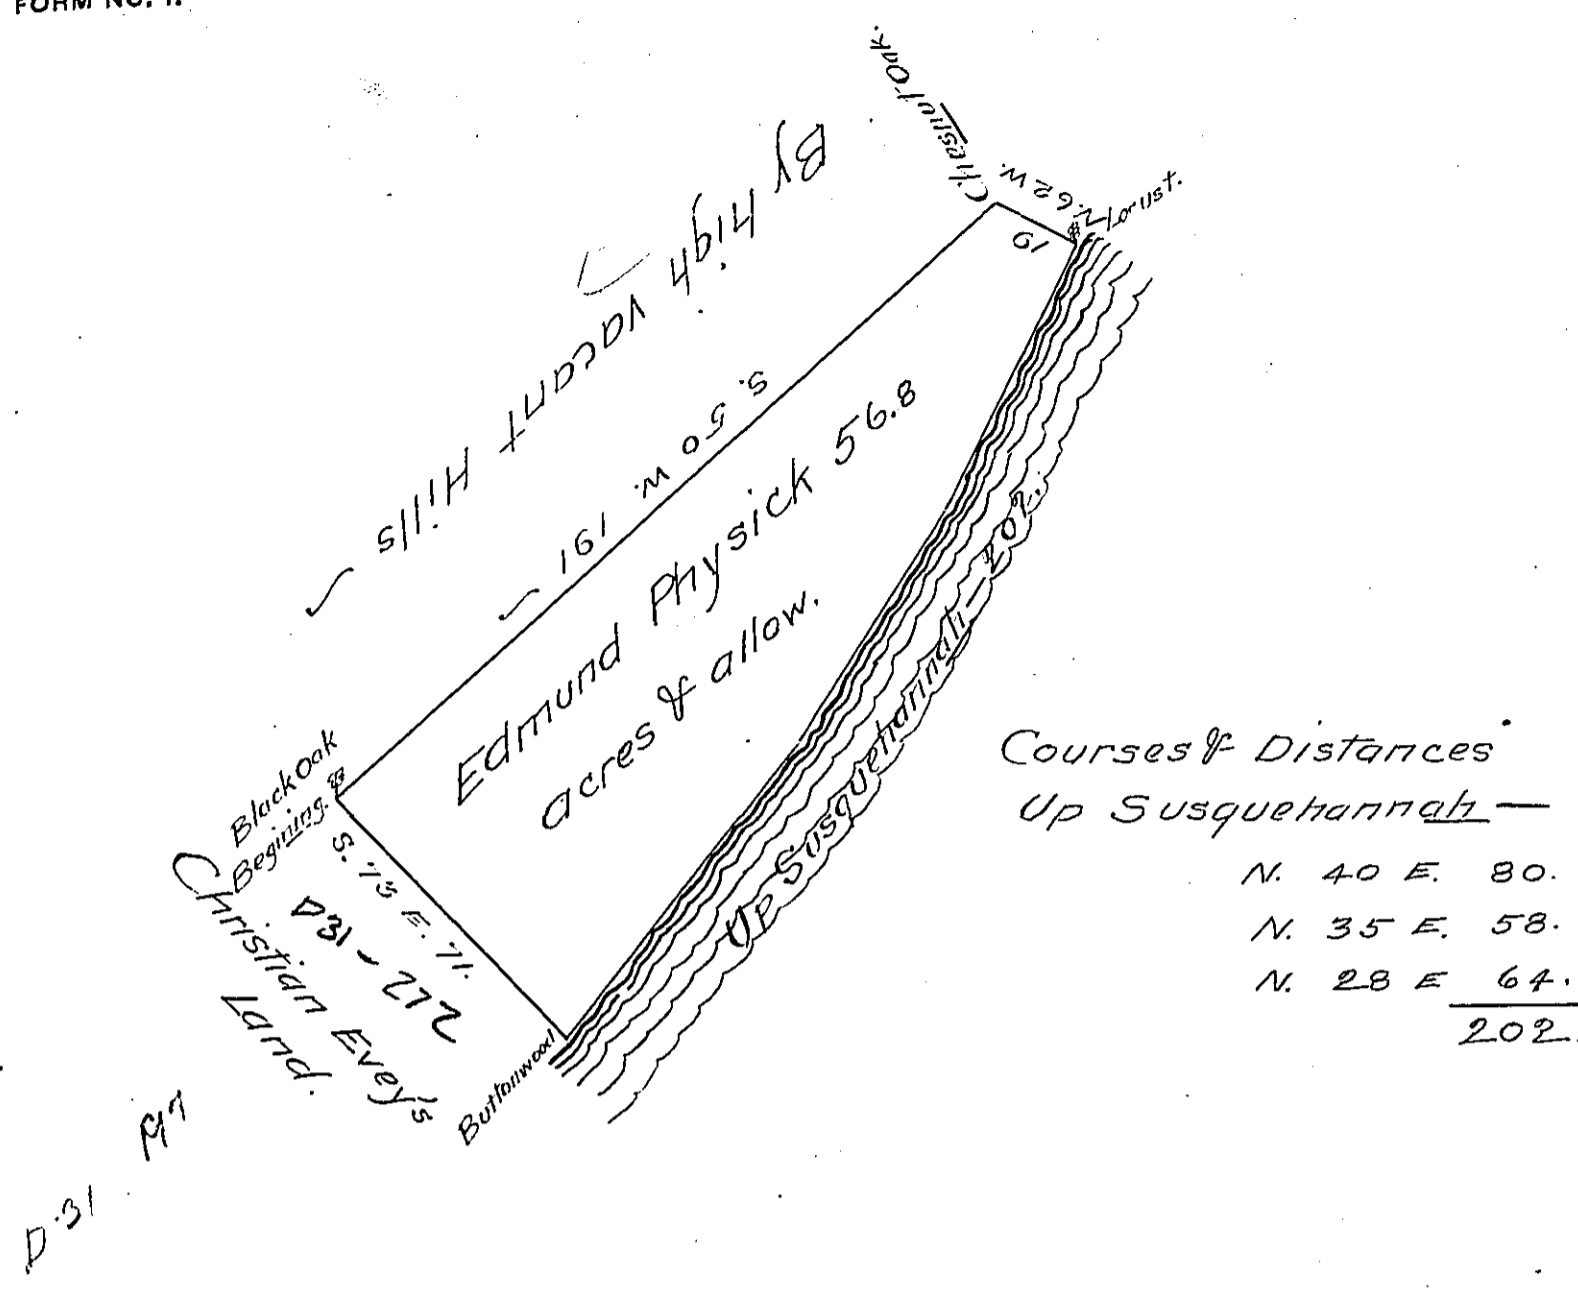 FORM NO. 1.
Chesnut Oak.
N. 62 W.
19
Locust.
By high vacant Hills
S. 50 W. 191
Edmund Physick 56.8
acres & allow.
Up Susquehannah — 202.
Black Oak
Begining.
S. 73 E. 71.
D31 - 272
Christian Evey's
Land.
Buttonwood
D.31
Courses & Distances
Up Susquehannah —
N. 40 E. 80.
N. 35 E. 58.
N. 28 E 64.
202.